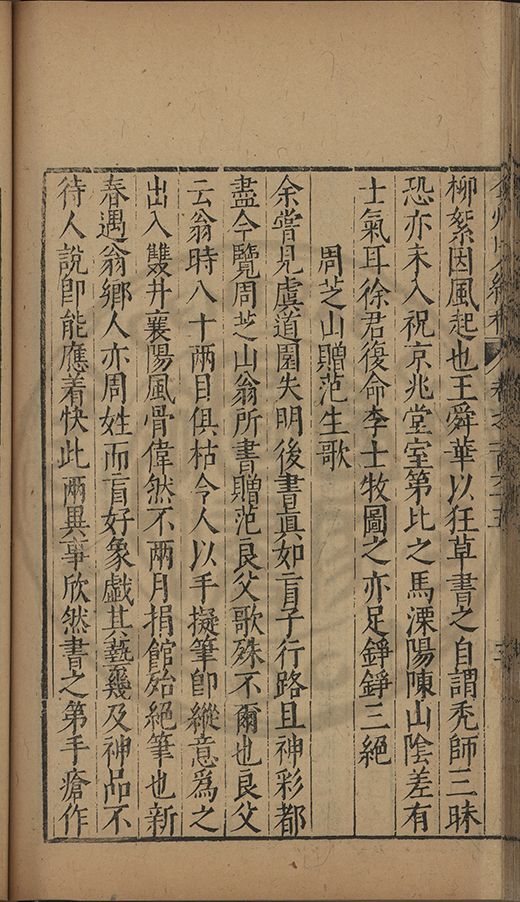 柳絮因風起也王舜華以狂草書之自謂禿師三昧
恐亦未入祝京兆堂室第比之馬溧陽陳山陰差有
士氣耳徐君復命李士牧圖之亦足錚錚三絕
周芝山贈范生歌
余嘗見虞道園失明後書真如盲子行路且神彩都
盡今覽周芝山翁所書贈范良父歌殊不爾也良父
云翁時八十兩目俱枯令人以手擬筆卽縱意爲之
出入雙井襄陽風骨偉然不兩月捐館殆絕筆也新
春遇翁鄉人亦周姓而盲好象戲其藝幾及神品不
待人說卽能應着快此兩異事欣然書之第手瘡作